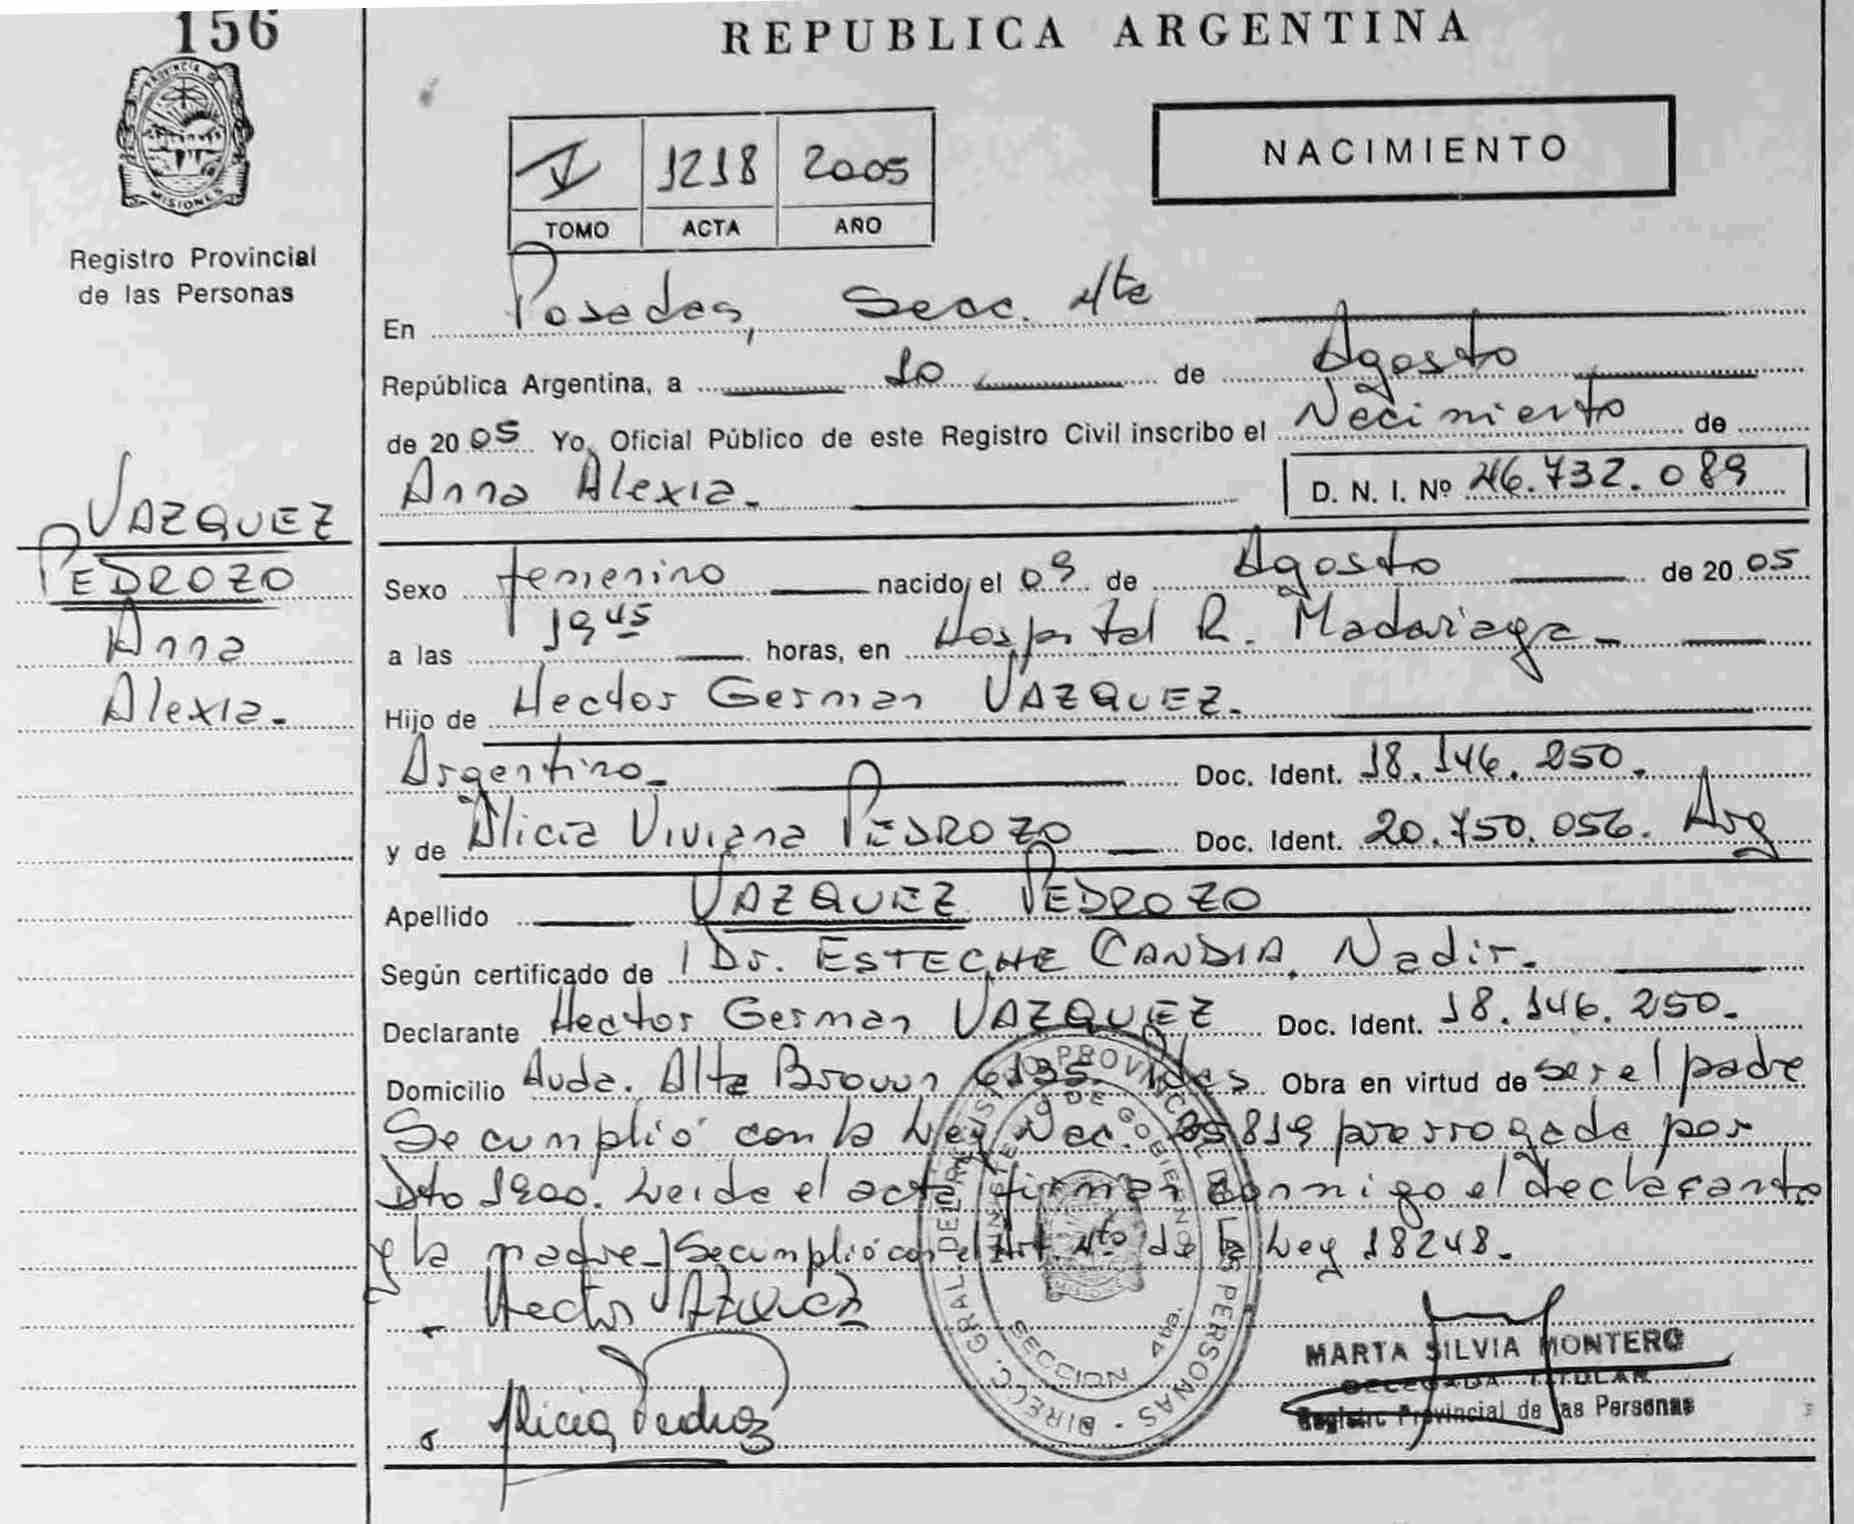 156
REPUBLICA ARGENTINA
PROVINCIA DE
MISIONES
Registro Provincial
de las Personas
I 1218 2005
TOMO ACTA AÑO
NACIMIENTO
En Posadas, Secc. 4ta
República Argentina, a 10 de Agosto
de 2005 Yo, Oficial Público de este Registro Civil inscribo el Nacimiento de
Anna Alexia.- D. N. I. Nº 46.732.089
VAZQUEZ
PEDROZO
Anna
Alexia.-
Sexo femenino nacido, el 09 de Agosto de 2005
a las 19 45 horas, en Hospital R. Madariaga-
Hijo de Hector German VAZQUEZ.
Argentino- Doc. Ident. 18.146.250.
y de Alicia Viviana PEDROZO Doc. Ident. 20.750.056. Arg
Apellido VAZQUEZ PEDROZO
Según certificado de Dr. ESTECHE CANDIA, Nadir.
Declarante Hector German VAZQUEZ Doc. Ident. 18.146.250.
Domicilio Avda. Alte Brown 6135. Pdas Obra en virtud de ser el padre
Se cumplió con la Ley Nac. 25819 prorrogada por
Dto 1900. Leida el acta firman conmigo el declarante
y la madre-Se cumplió con el Art. 4to de la Ley 18248.
Hector VAZQUEZ
Alicia Pedrozo
DIRECC. GRAL DEL REGISTRO PROVINCIAL DE LAS PERSONAS
MINISTERIO DE GOBIERNO
SECCION 4ta.
MARTA SILVIA MONTERO
DELEGADA TITULAR
Registro Provincial de las Personas